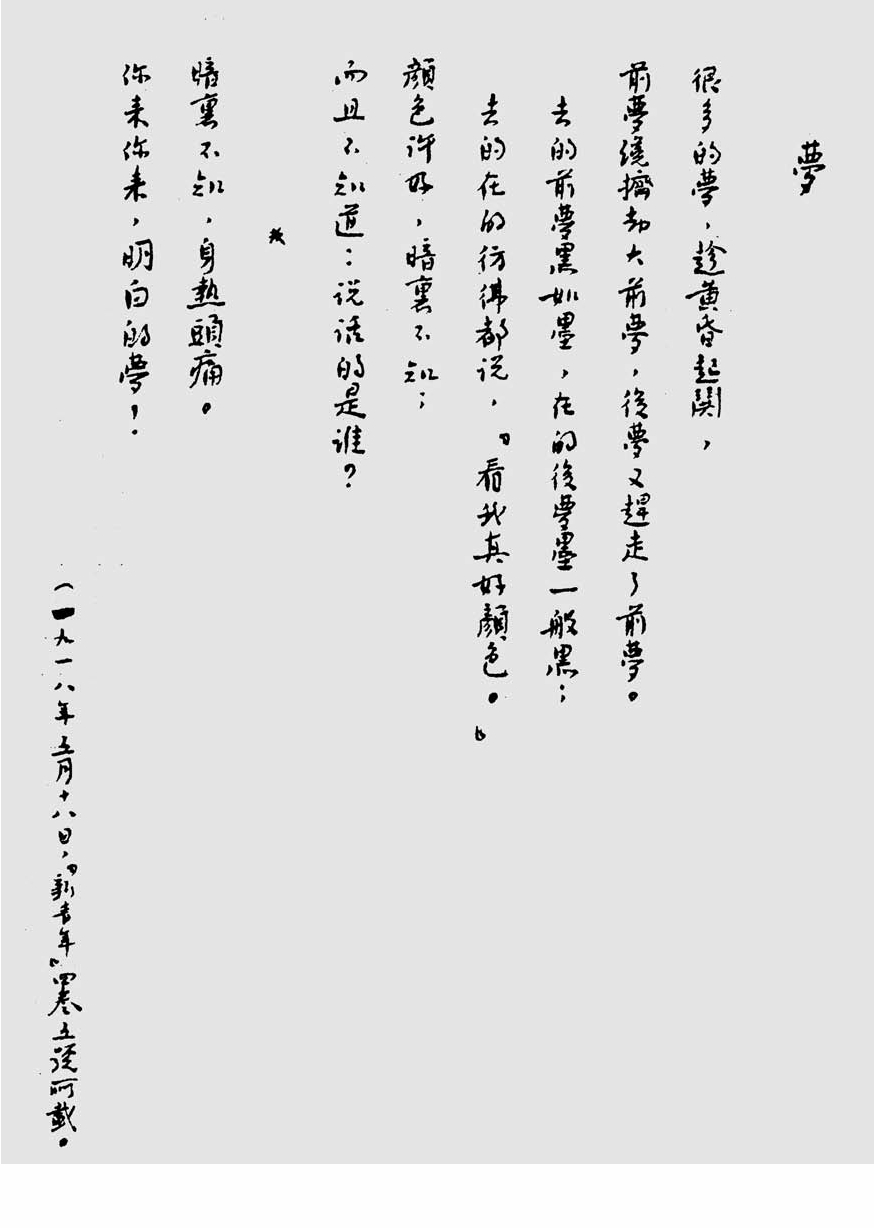 夢
很多的夢,趁黃昏起鬨,
前夢纔擠却大前夢,後夢又趕走了前夢。
去的前夢黑如墨,在的後夢墨一般黑;
去的在的彷彿都说,『看我真好顏色。』
顏色许好,暗裏不知;
而且不知道:说话的是谁?
暗裏不知,身熱頭痛。
你来你来,明白的夢!
(一九一八年五月十八日,『新青年』四卷五號所載。